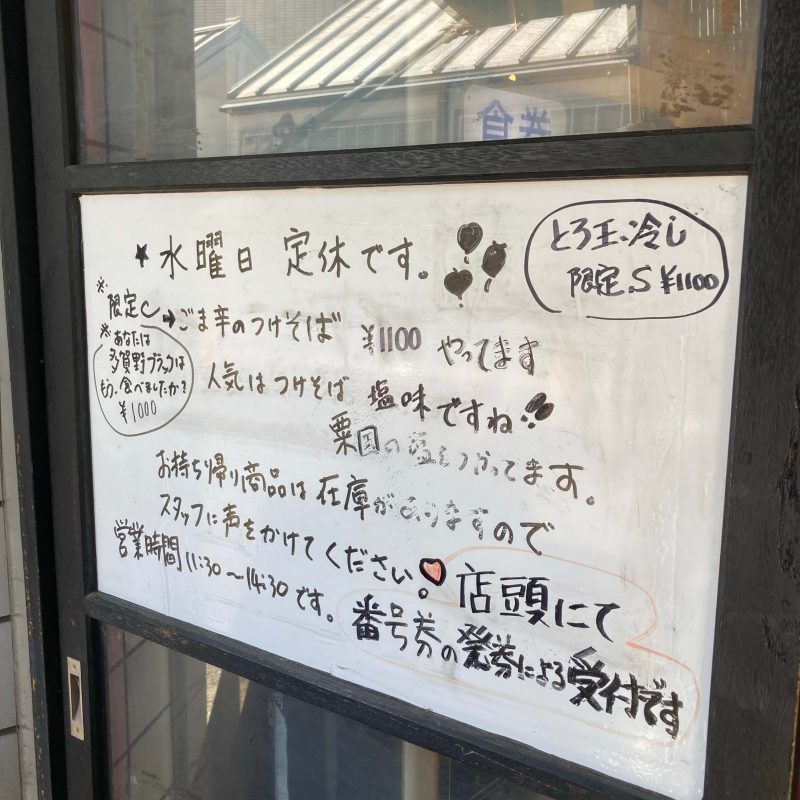 食券
★水曜日 定休です。
とろ玉、冷し
限定、S ¥1100
※限定C→ごま辛のつけそば ¥1100 やってます
※あなたは
多賀野ブラックは
もう、食べましたか?
¥1000
人気はつけそば 塩味ですね!!
粟国の塩をつかってます。
お持ち帰り商品は在庫がありますので
スタッフに声をかけてください!
営業時間11:30〜14:30です。
店頭にて
番号券の発券による受付です